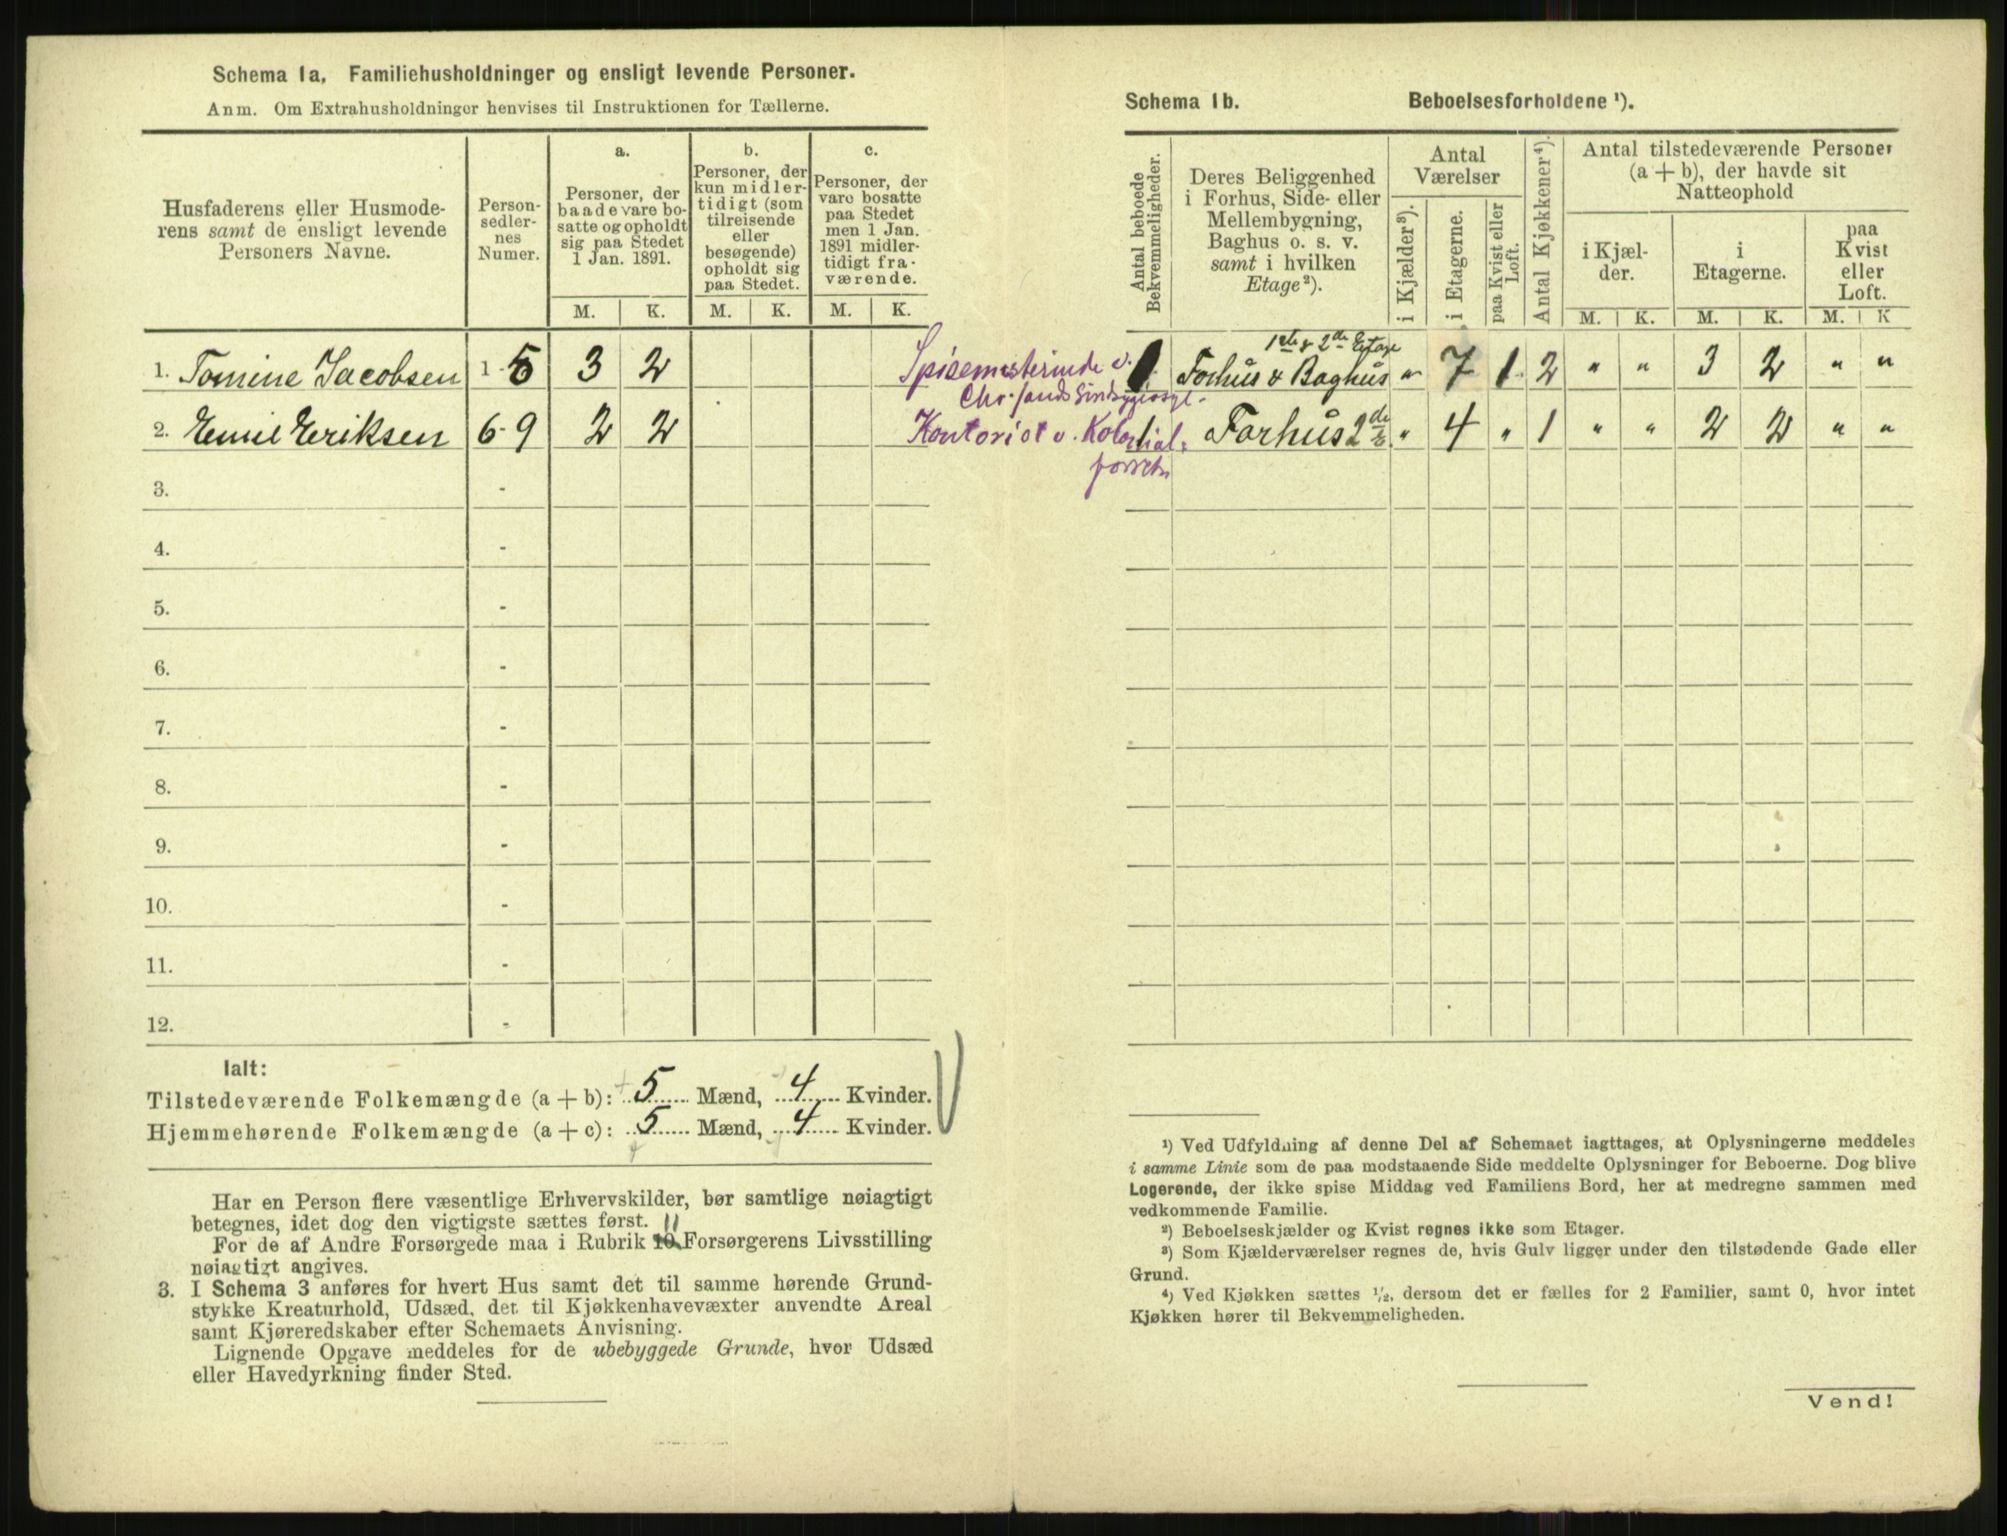 Schema 1a. Familiehusholdninger og ensligt levende Personer.
Anm. Om Extrahusholdninger henvises til Instruktionen for Tællerne.
Husfaderens eller Husmode-
rens samt de ensligt levende
Personers Navne.
Person-
sedler-
nes
Numer.
a.
Personer, der
baade vare bo-
satte og opholdt
sig paa Stedet
1 Jan. 1891.
b.
Personer, der
kun midler-
tidigt (som
tilreisende
eller
besøgende)
opholdt sig
paa Stedet.
c.
Personer, der
vare bosatte
paa Stedet
men 1 Jan.
1891 midler-
tidigt fra-
værende.
M. K. M. K. M. K.
1. Tomine Jacobsen 1-5 3 2
2. Emil Eriksen 6-9 2 2
3. -
4. -
5. -
6. -
7. -
8. -
9. -
10. -
11. -
12. -
Ialt:
Tilstedeværende Folkemængde (a + b): 5 Mænd, 4 Kvinder.
Hjemmehørende Folkemængde (a + c): 5 Mænd, 4 Kvinder.
Har en Person flere væsentlige Erhvervskilder, bør samtlige nøiagtigt
betegnes, idet dog den vigtigste sættes først.
11
For de af Andre Forsørgede maa i Rubrik 10 Forsørgerens Livsstilling
nøiagtigt angives.
3. I Schema 3 anføres for hvert Hus samt det til samme hørende Grund-
stykke Kreaturhold, Udsæd, det til Kjøkkenhavevæxter anvendte Areal
samt Kjøreredskaber efter Schemaets Anvisning.
Lignende Opgave meddeles for de ubebyggede Grunde, hvor Udsæd
eller Havedyrkning finder Sted.
Schema 1b. Beboelsesforholdene ¹).
Antal beboede
Bekvemmeligheder.
Deres Beliggenhed
i Forhus, Side- eller
Mellembygning,
Baghus o. s. v.
samt i hvilken
Etage ²).
Antal
Værelser
i Kjælder ³).
i Etagerne.
paa Kvist eller
Loft.
Antal Kjøkkener ⁴).
Antal tilstedeværende Personer
(a + b), der havde sit
Natteophold
i Kjæl-
der.
i
Etagerne.
paa
Kvist
eller
Loft.
M. K. M. K. M. K
Spisemesterinde v.
Chr.sands Sindsygeasyl.
1ste & 2den Etage
1 Forhus & Baghus " 7 1 2 " " 3 2 " "
Kontorist v. Kolonial-
forretn
1 Forhus 2de E. " 4 " 1 " " 2 2 " "
¹) Ved Udfyldning af denne Del af Schemaet iagttages, at Oplysningerne meddeles
i samme Linie som de paa modstaaende Side meddelte Oplysninger for Beboerne. Dog blive
Logerende, der ikke spise Middag ved Familiens Bord, her at medregne sammen med
vedkommende Familie.
²) Beboelseskjælder og Kvist regnes ikke som Etager.
³) Som Kjælderværelser regnes de, hvis Gulv ligger under den tilstødende Gade eller
Grund.
⁴) Ved Kjøkken sættes ¹/₂, dersom det er fælles for 2 Familier, samt 0, hvor intet
Kjøkken hører til Bekvemmeligheden.
Vend!